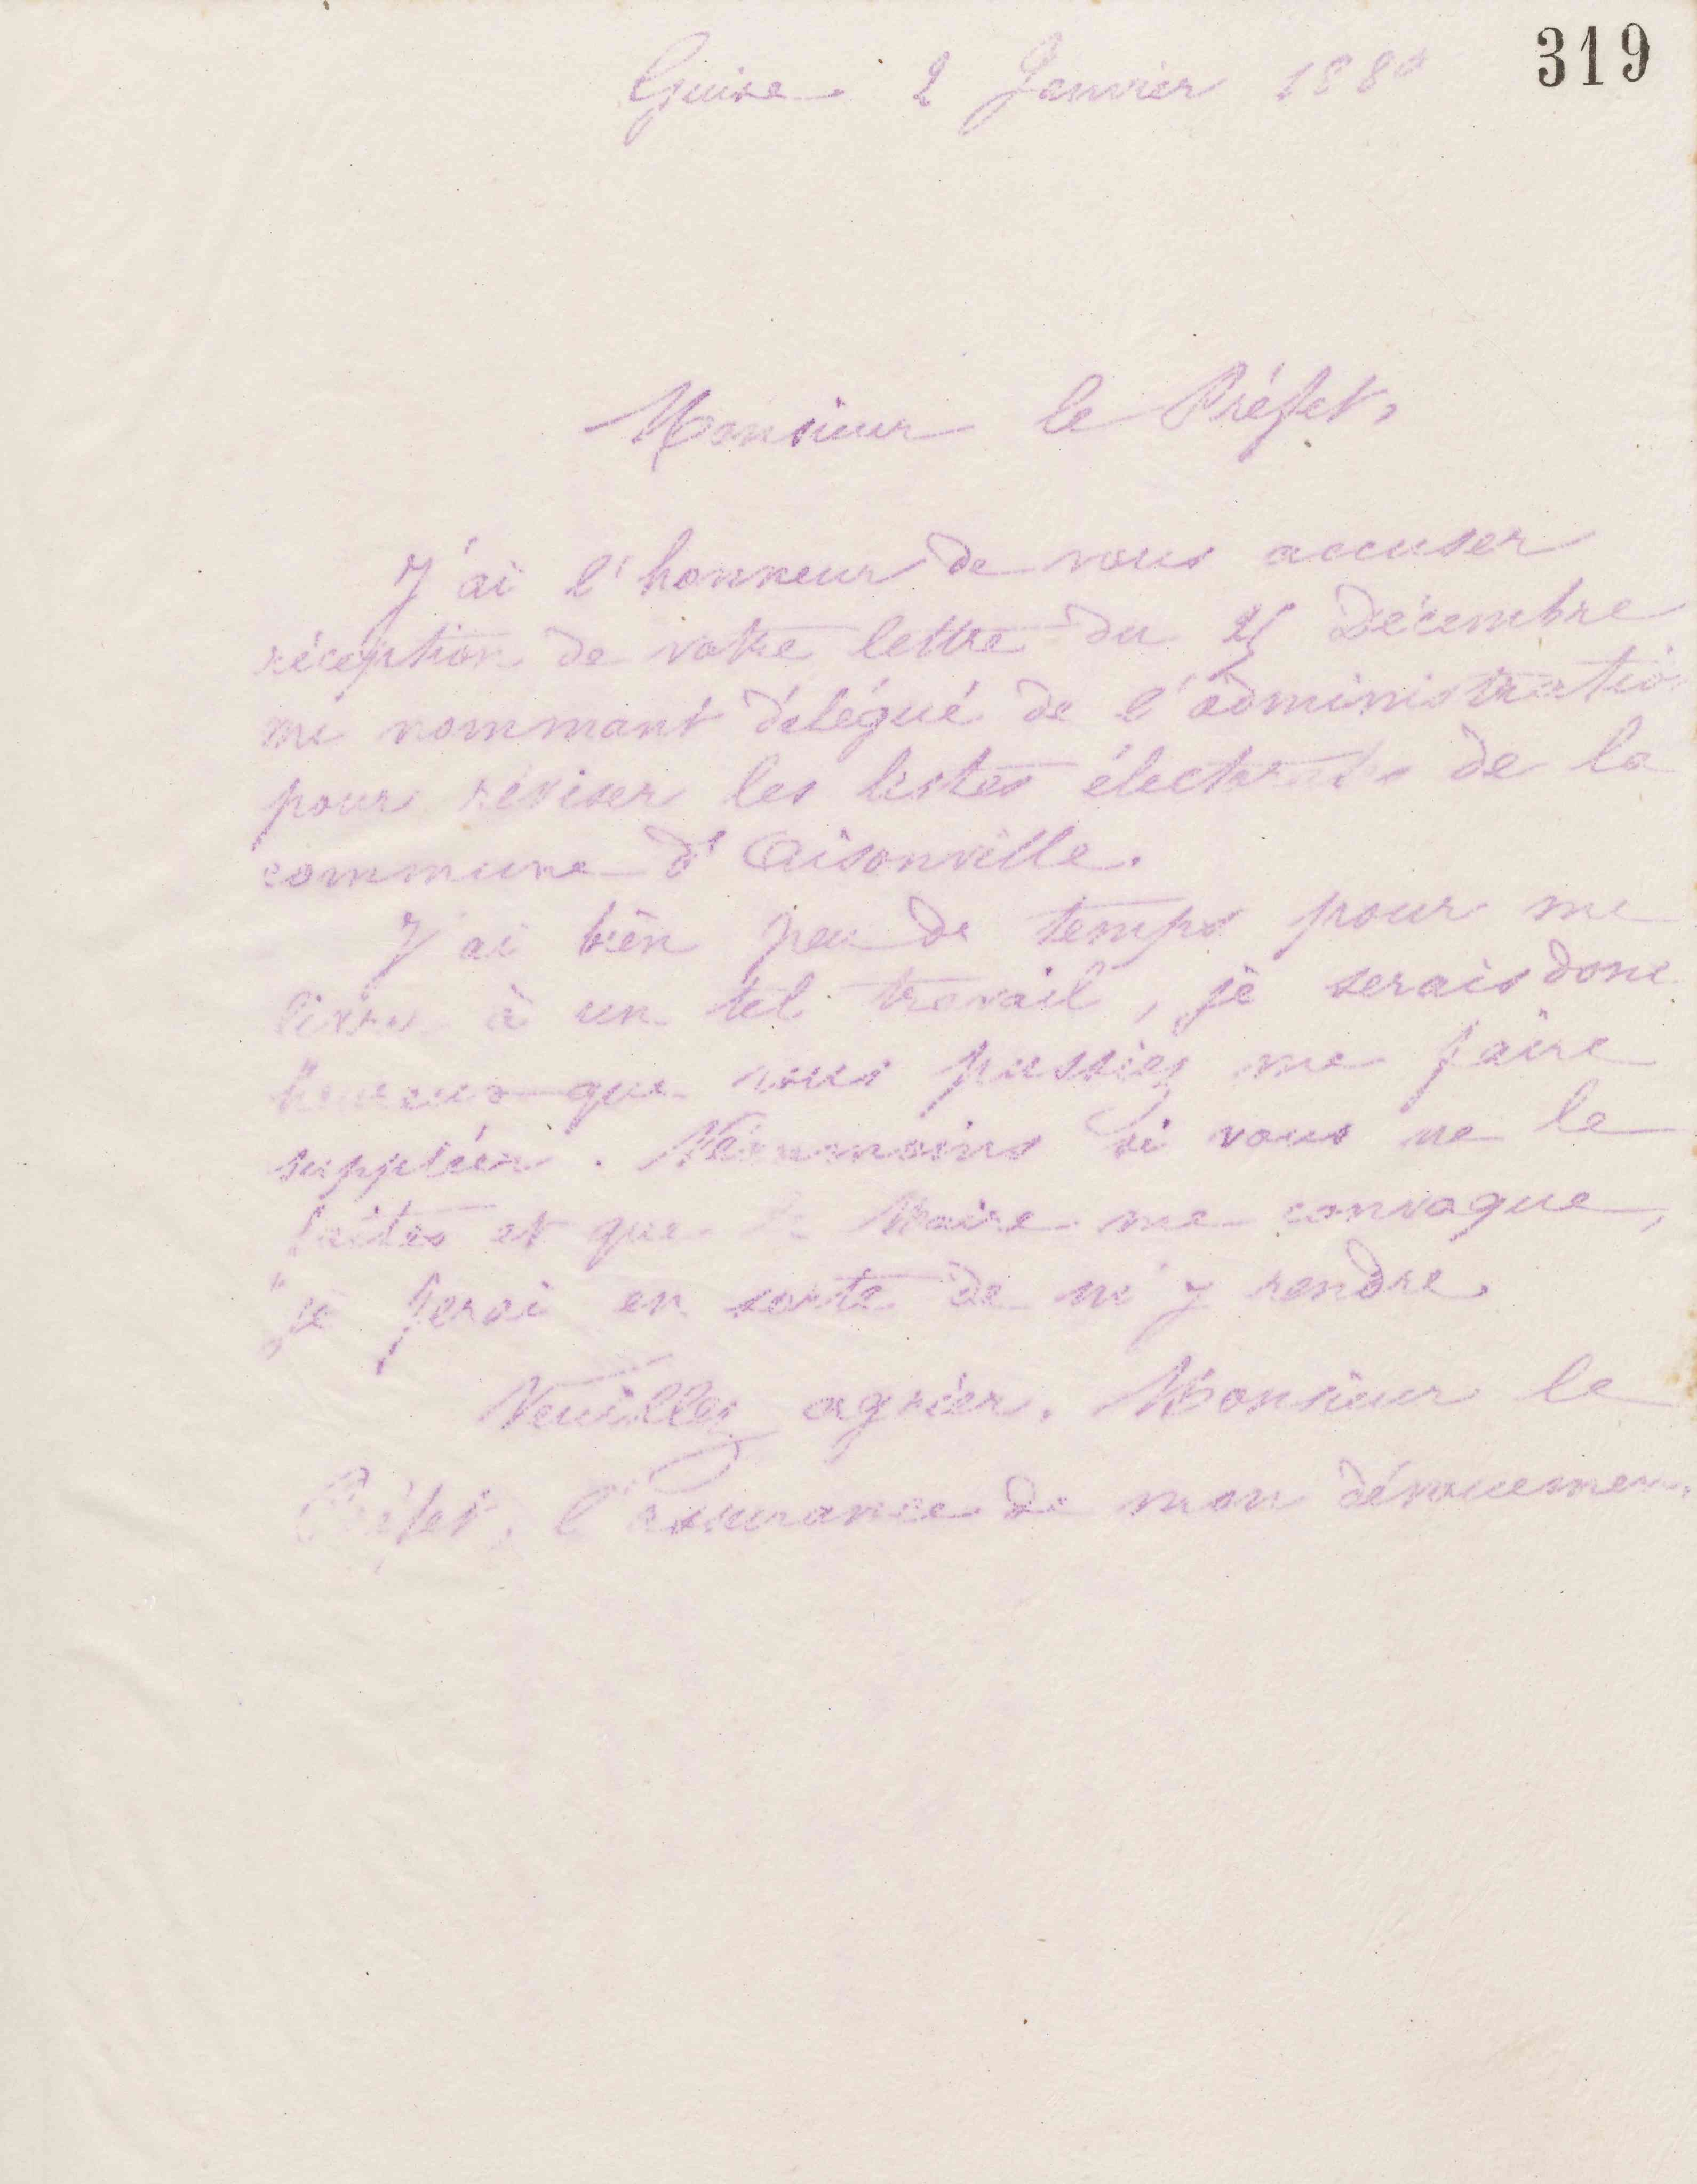 319
Guise. 2 Janvier 1880
Monsieur le Préfet,
J'ai l'honneur de vous accuser
réception de votre lettre du 25 Décembre
me nommant délégué de l'administratio
pour réviser les listes électorales de la
commune d'Aisonville.
J'ai bien peu de temps pour me
livrer à un tel travail, je serais donc
heureux que vous pussiez me faire
suppléer. Néanmoins si vous ne le
faites et que le Maire me convoque,
je ferai en sorte de m'y rendre.
Veuillez agréer, Monsieur le
Préfet, l'assurance de mon dévouement.